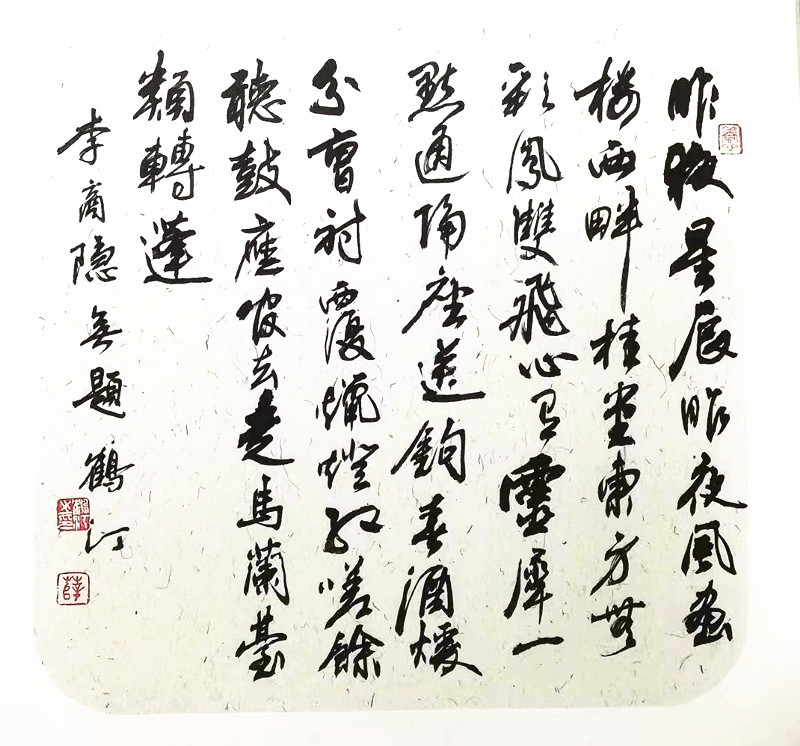 昨夜星辰昨夜風畫
樓西畔桂堂東身無
彩鳳雙飛心有靈犀一
點通隔座送鉤春酒暖
分曹射覆蠟燈紅嗟餘
聽鼓應官去走馬蘭臺
類轉蓬
李商隱無題 鶴汀
薛